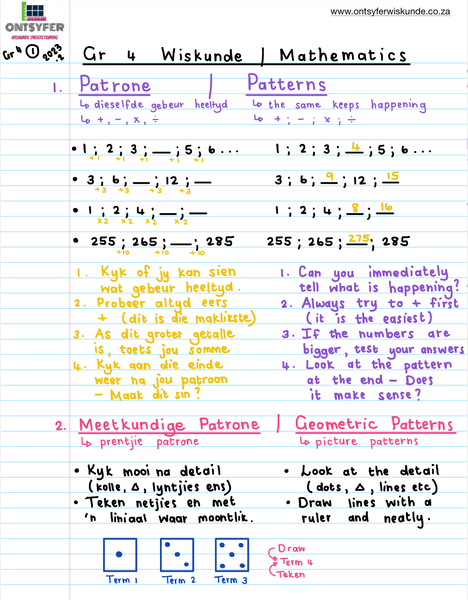 ONTSYFER
WISKUNDE ONTSYFERING
www.ontsyferwiskunde.co.za
Gr 4 ① 2023.2
Gr 4 Wiskunde | Mathematics
1. Patrone | Patterns
↳ dieselfde gebeur heeltyd
↳ the same keeps happening
↳ +, -, x, ÷
↳ + ; - ; x ; ÷
• 1 ; 2 ; 3 ; __ ; 5 ; 6 ...
+1 +1 +1 +1
1 ; 2 ; 3 ; 4 ; 5 ; 6 ...
• 3 ; 6 ; __ ; 12 ; __
+3 +3 +3 +3
3 ; 6 ; 9 ; 12 ; 15
• 1 ; 2 ; 4 ; __ ; __
x2 x2 x2 x2
1 ; 2 ; 4 ; 8 ; 16
• 255 ; 265 ; __ ; 285
+10 +10 +10
255 ; 265 ; 275 ; 285
1. Kyk of jy kan sien
wat gebeur heeltyd.
2. Probeer altyd eers
+ (dit is die maklikste)
3. As dit groter getalle
is, toets jou somme
4. Kyk aan die einde
weer na jou patroon
- Maak dit sin?
1. Can you immediately
tell what is happening?
2. Always try to + first
(it is the easiest)
3. If the numbers are
bigger, test your answers
4. Look at the pattern
at the end - Does
it make sense?
2. Meetkundige Patrone | Geometric Patterns
↳ prentjie patrone
↳ picture patterns
• Kyk mooi na detail
(kolle, Δ, lyntjies ens)
• Teken netjies en met
'n liniaal waar moontlik.
• Look at the detail
(dots, Δ, lines etc)
• Draw lines with a
ruler and neatly.
Term 1
Term 2
Term 3
Draw
Term 4
Teken